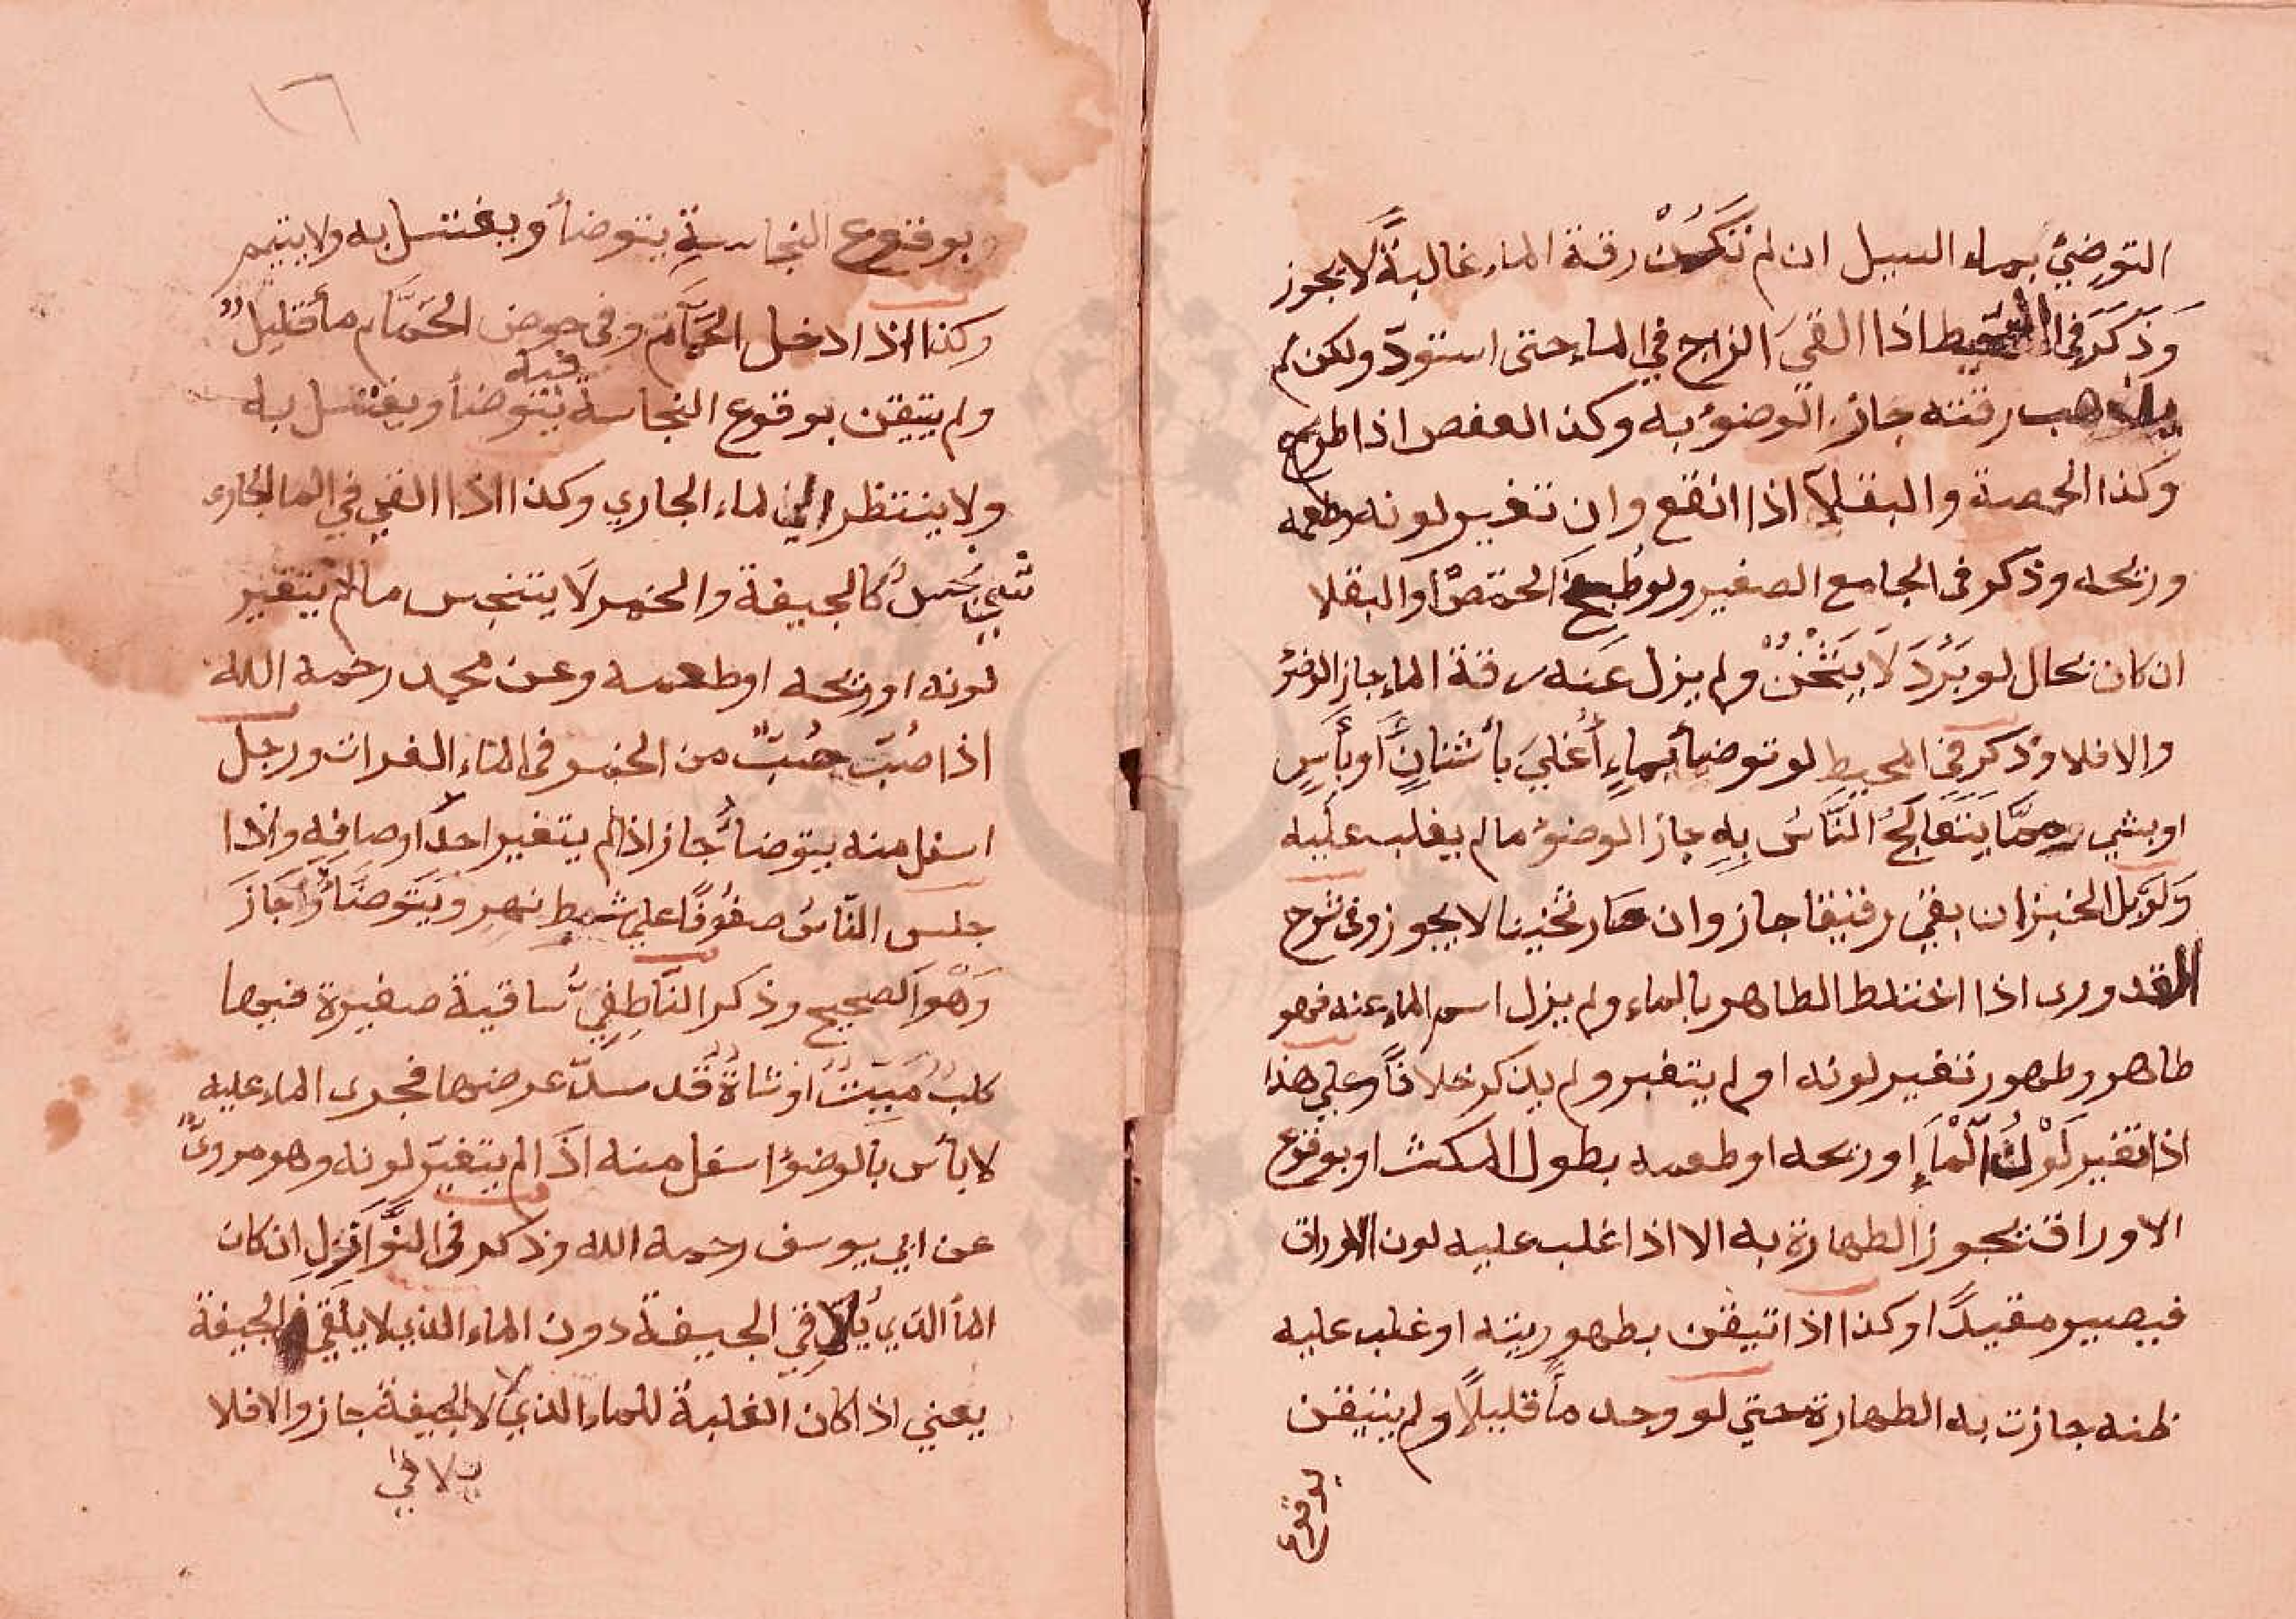 التوضئ بماء السيل ان لم تَكُنْ رقة الماء غالبةً لا يجوز
وَذَكَرَ في المحيط اذا القيَ الزاج في الماء حتى استودّ ولكن لم
يذهب رقته جاز الوضوء به وكذا العفص اذا طرح
وكذا الحمصة والبقلآ اذا انقع وان تغير لونه وطعمه
وريحه وذكر في الجامع الصغير ولو طُبِخَ الحمّصُ او البقلا
ان كان بحال لو بَرُدَ لَا يَثْخُنْ ولم يزل عنه رقة الماء جاز الوضؤ
والا فلا وذكر في المحيط لو توضأ بماءٍ أُغليَ بأشنانٍ أو بأَسٍ
او بشيء ممَّا يَتَعَالَجُ النَّاسُ بِهِ جاز الوضوء ما لم يغلب عليه
وَلَوْ بَلَّ الخبز ان بقي رقيقا جاز وان صار ثخينا لا يجوز وفي شرح
القدوري اذا اختلط الطاهر بالماء ولم يزل اسم الماء عنه فهو
طاهر وطهور تغير لونه او لم يتغير ولم يذكر خلافاً وعلي هذا
اذا تغير لَوْنُ الْمَاءِ او ريحه او طعمه بطول المكث او بوقوع
الاوراق تجوز الطهارة به الا اذا غلب عليه لون الاوراق
فيصير مقيدًا وكذا اذا تيقن بطهوريته او غلب عليه
ظنه جازت به الطهارة حتي لو وجد مأً قليلاً ولم يتيقن
بوقوع
١٦
بوقوع النجاسةِ يتوضأ ويغتسل به ولا يتيمم
وكذا اذا ادخل الحمَّام وفي حوض الحمَّام مأ قليلٌ
ولم يتيقن بوقوع النجاسة فيه يتوضأ ويغتسل به
ولا ينتظر الي الماء الجاري وكذا اذا القي في الما الجاري
شيءٌ نجسٌ كالجيفة والخمر لَا يتنجس ما لم يتغير
لونه او ريحه او طعمه وعن محمد رحمه الله
اذا صُبّ حُبٌّ من الخمر في الماء الفرات ورجل
اسفل منه يتوضأ جاز اذا لم يتغير احد اوصافه واذا
جلس النّاسُ صفوفًا علي شط نهرٍ وَيَتَوضَّاؤُا جَازَ
وَهُوَ الصحيح وذكر النَاطِفِيُّ ساقية صغيرة فيها
كلبٌ مَيِّتٌ اَوْ شاةٌ قد سدّ عرضها فجرى الماء عليه
لا بأس بالوضؤ اسفل منه اذَا لم يتغيّر لونه وهو مرويٌّ
عن ابي يوسف رحمة الله وذكر في النَّوَازِلِ ان كان
المأ الذي يُلَاقِي الجيفة دون الماء الذي لا يلَاقي الجيفة
يعني اذا كان الغلبة للماء الذي لا الجيفة جاز والا فلا
يلاقي